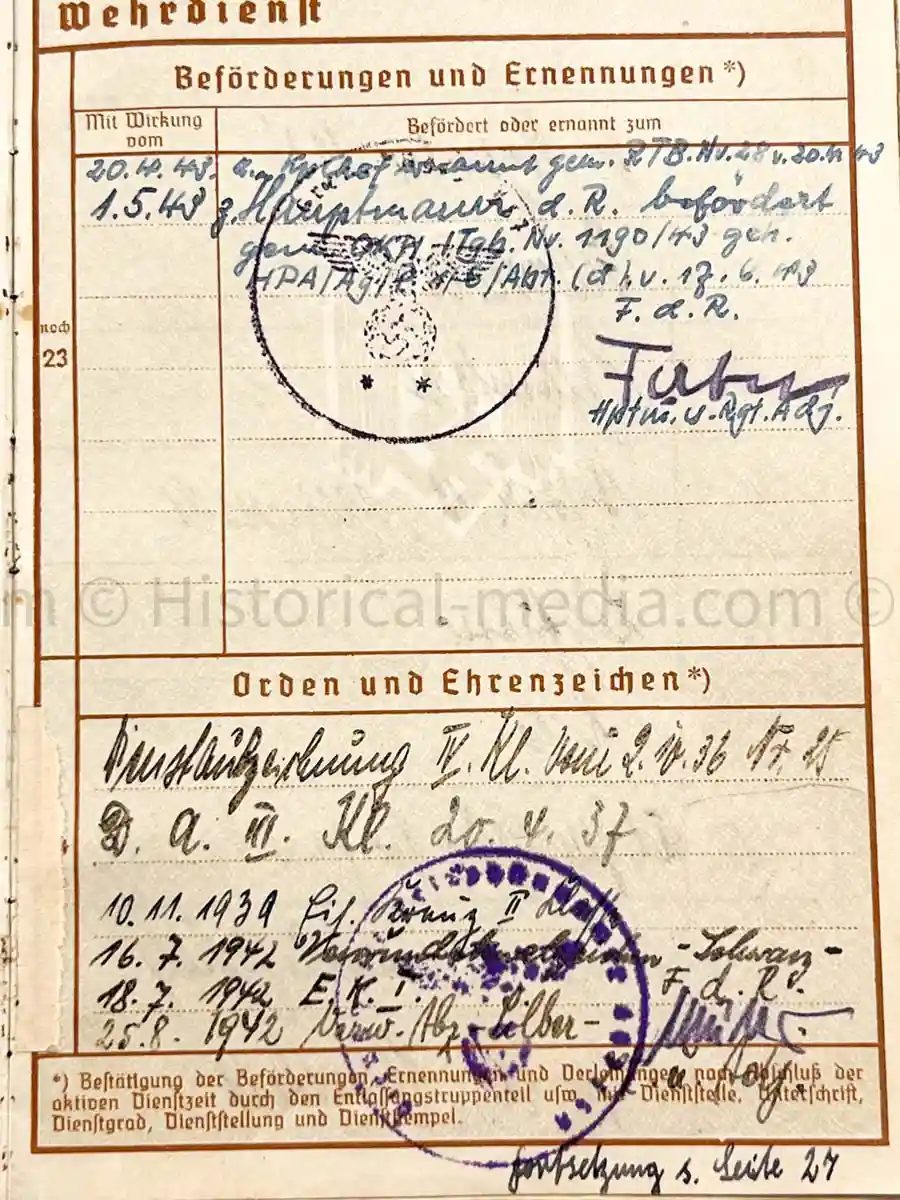 Wehrdienst
Beförderungen und Ernennungen *)
Mit Wirkung vom
Befördert oder ernannt zum
20.4.43. ernannt gem. RTB. Nr. 28 v. 20.4.43
1.5.43 z. Hauptmann d. R. befördert
gem. OKH – Tgb. Nr. 1190/43 geh.
HPA/Ag/P /Abt. v. 17. 6. 43
F. d. R.
noch
23
Hptm. u. Rgt. Adj.
m © Historical-media.com ©
Orden und Ehrenzeichen *)
Dienstauszeichnung IV. Kl. vom 2.10.36 Nr. 25
D. A. III. Kl. 20. 4. 37
10.11. 1939 Eis. Kreuz II Kl.
16. 7. 1942 Verwundetenabzeichen - Schwarz -
18.7. 1942 E. K. I. F. d. R.
25.8. 1942 Verw. Abz. - Silber -
u. Adj.
*) Bestätigung der Beförderungen, Ernennungen und Verleihungen nach Abschluß der
aktiven Dienstzeit durch den Entlassungstruppenteil usw. mit Dienststelle, Unterschrift,
Dienstgrad, Dienststellung und Dienststempel.
Fortsetzung s. Seite 27